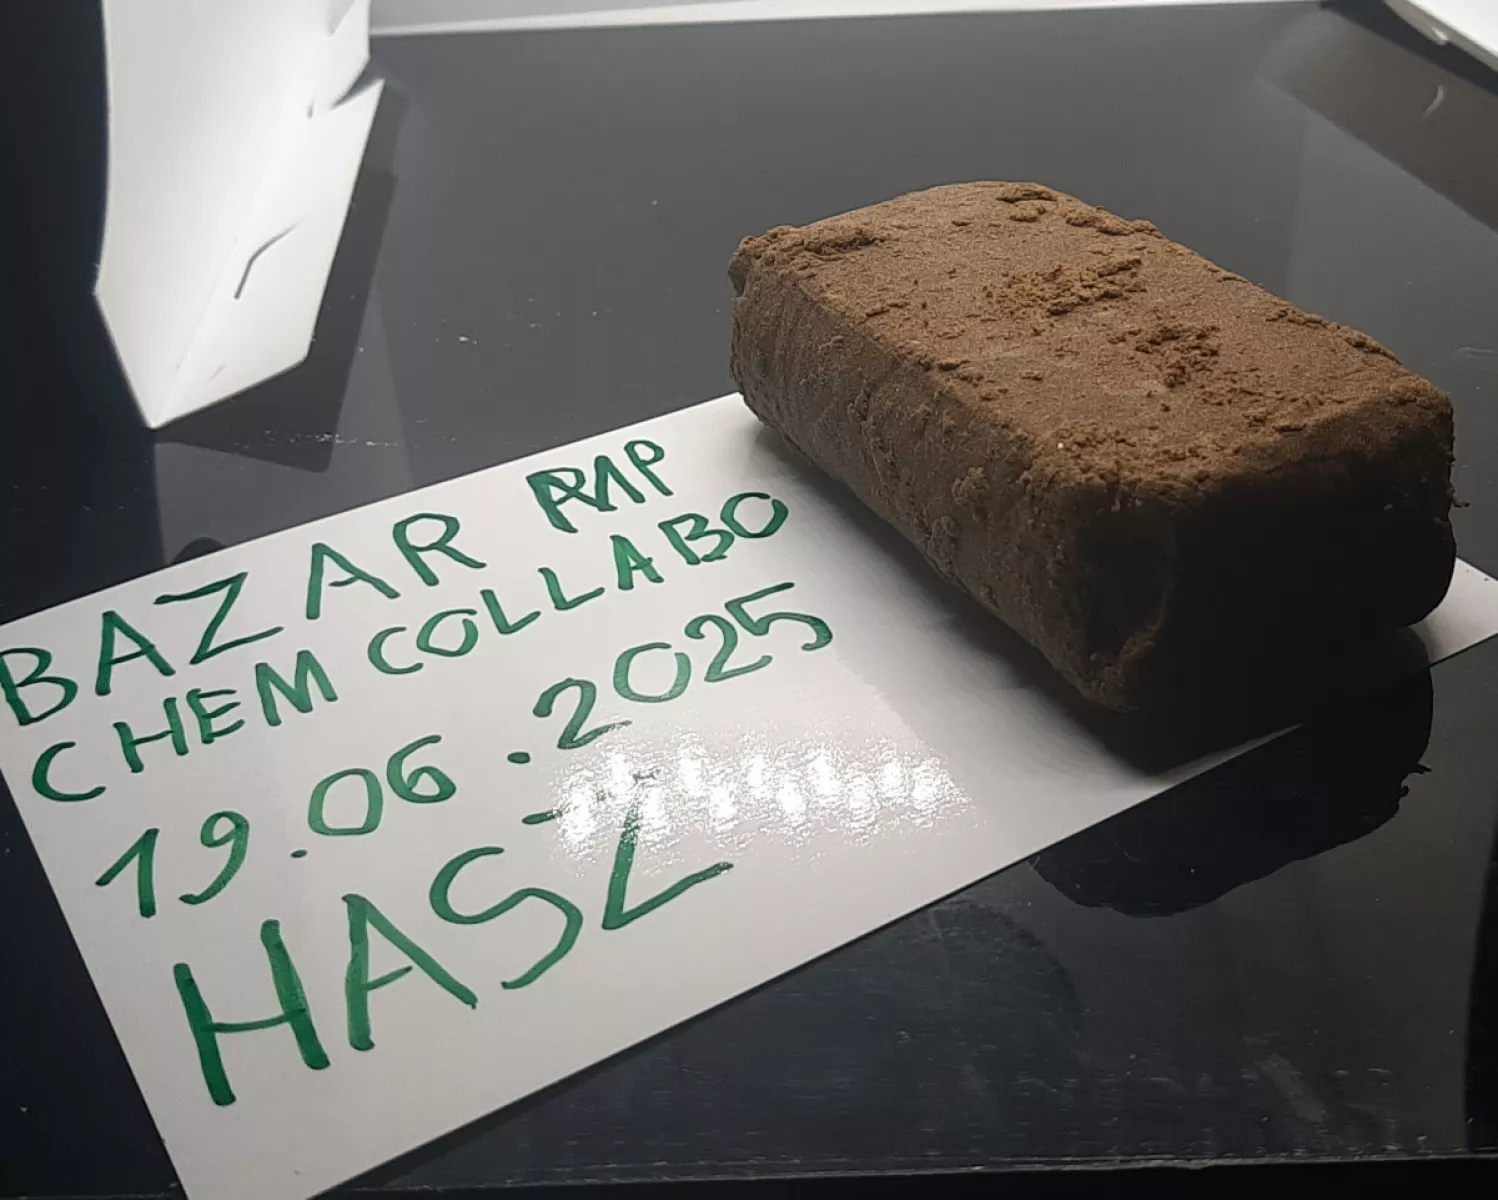 BAZAR RMP
CHEM COLLABO
19.06.2025
HASZ